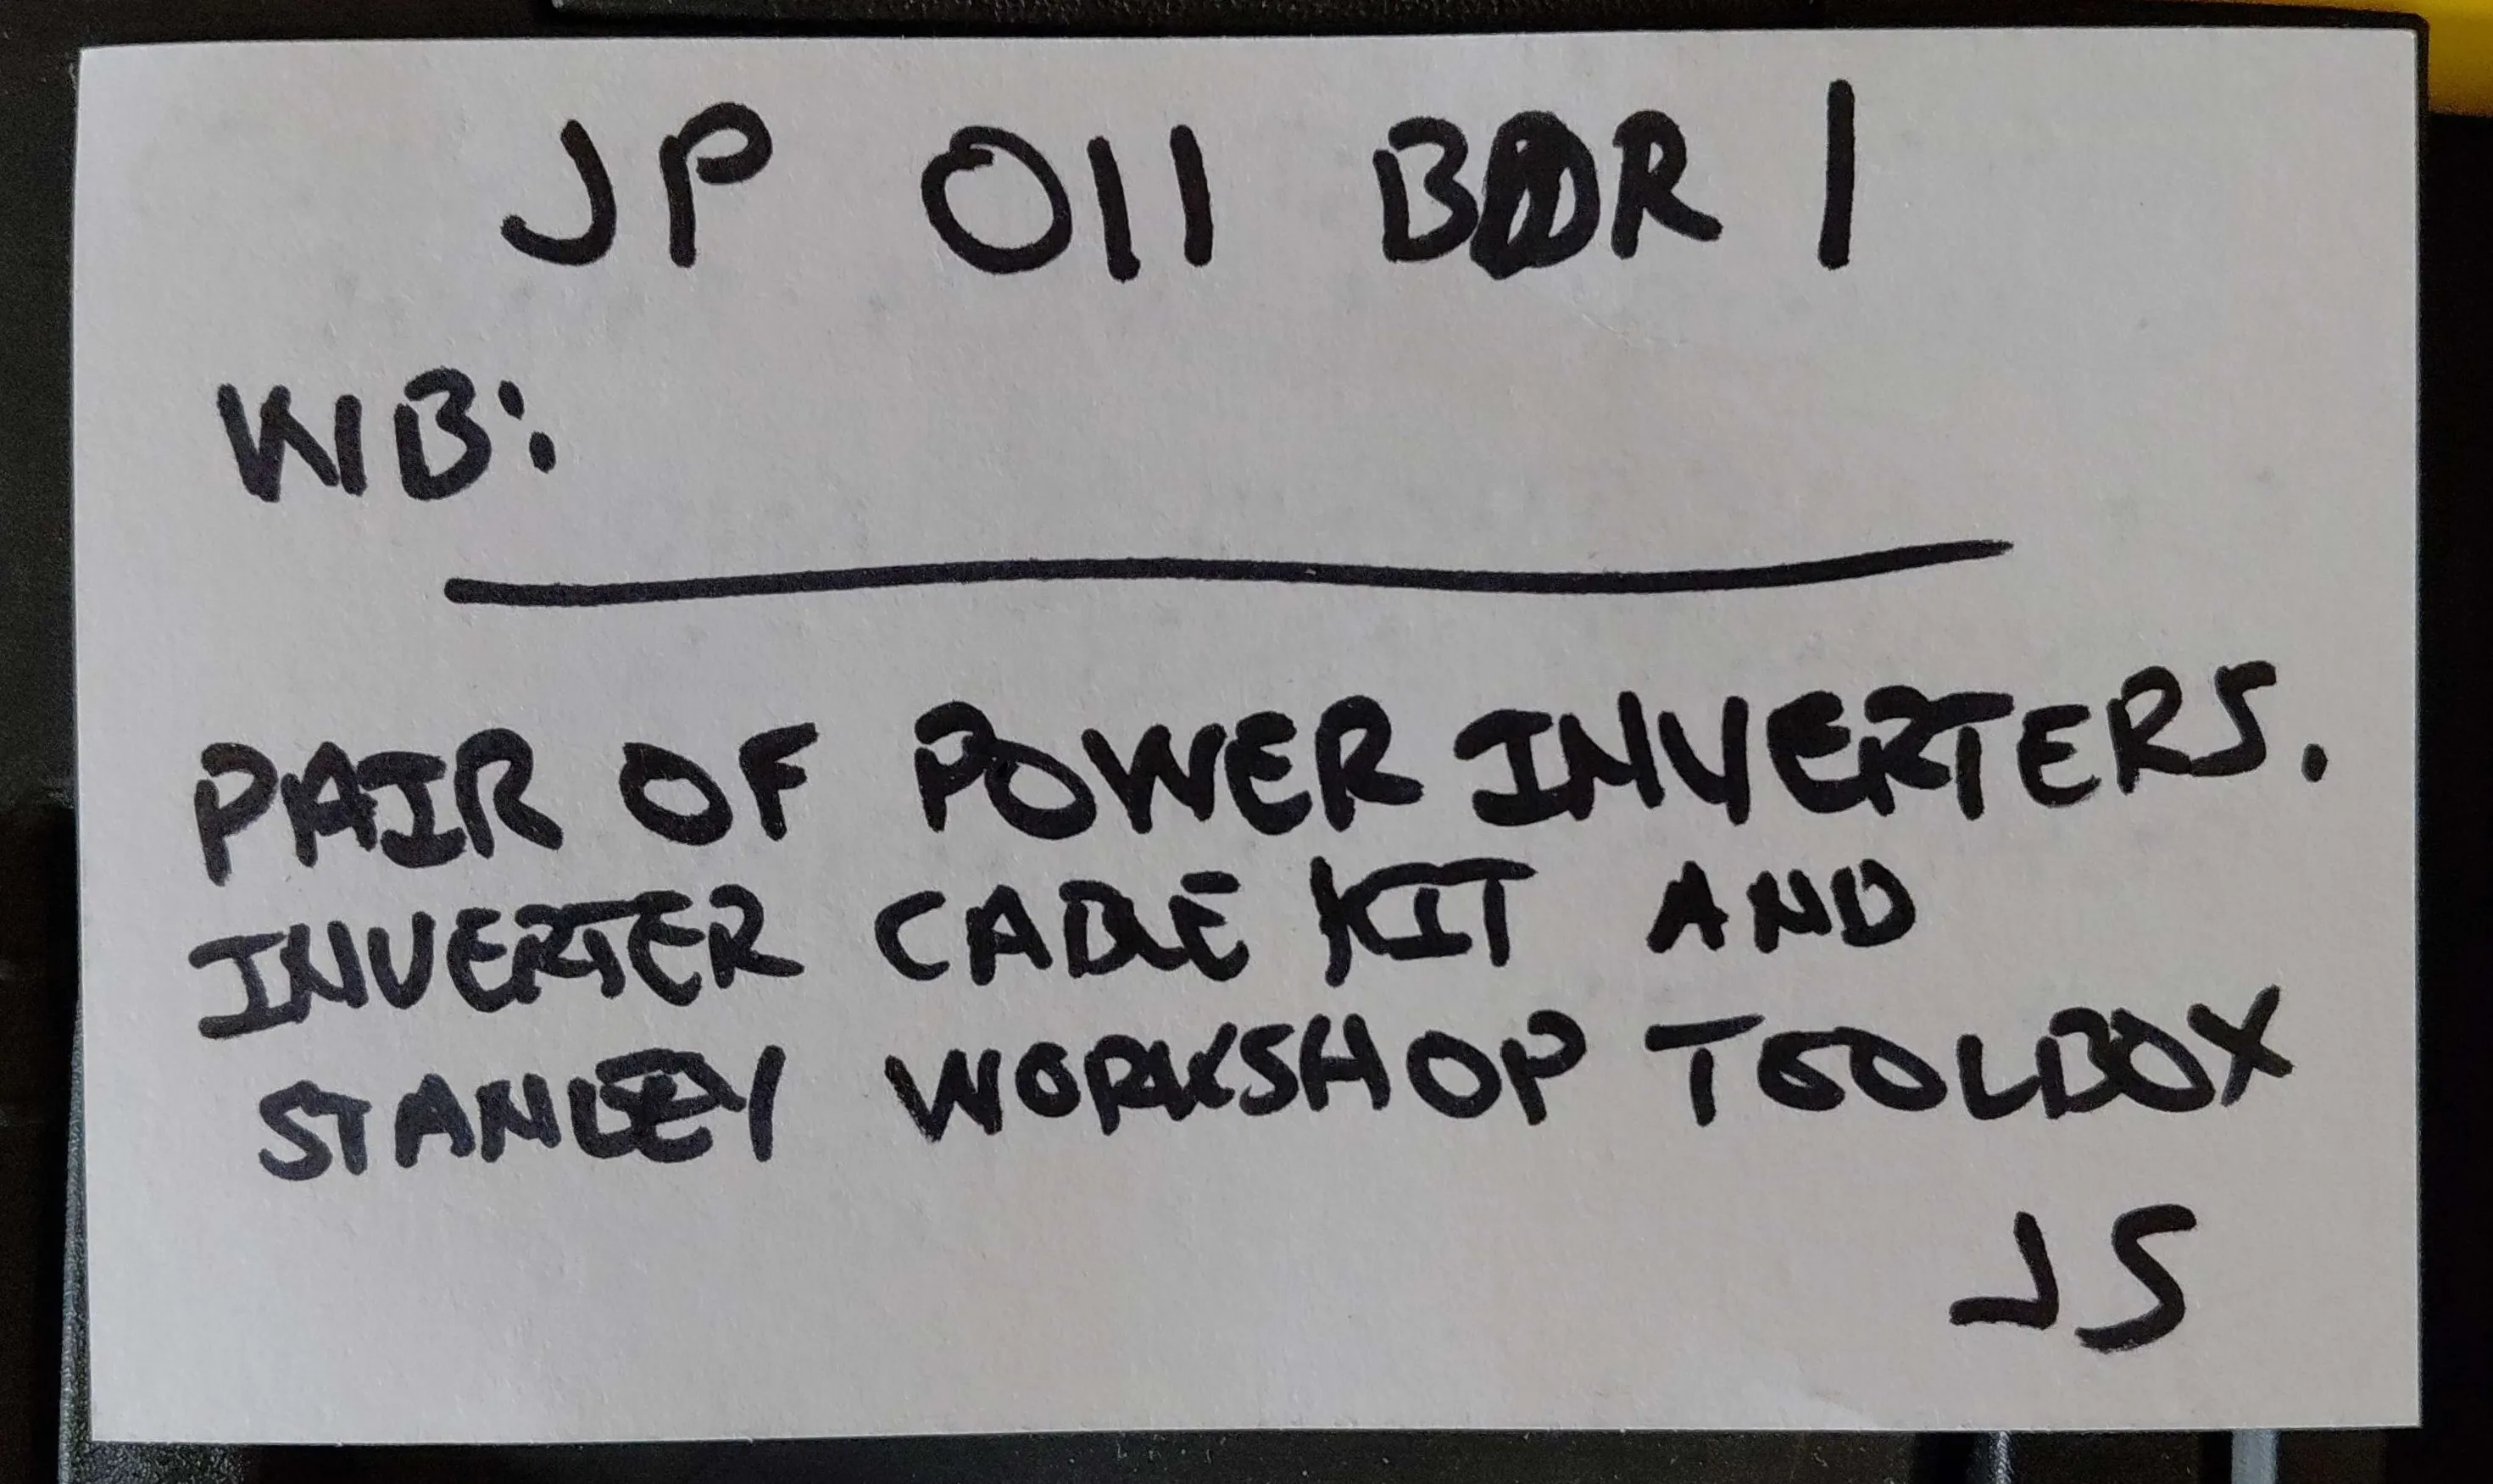 JP 011 BDR 1
WB:
PAIR OF POWER INVERTERS.
INVERTER CABLE KIT AND
STANLEY WORKSHOP TOOLBOX
JS